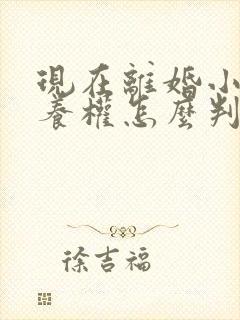 現在離婚小
養權怎麼判
徐吉福